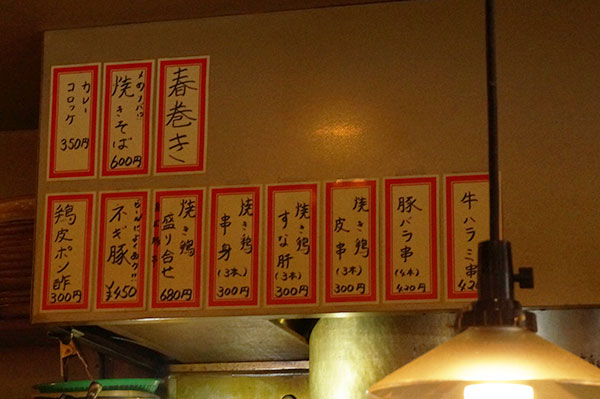 春巻き
焼きそば
600円
カレー
コロッケ
350円
牛ハラミ串
豚バラ串
(4本)
420円
焼き鶏
皮串
(3本)
300円
焼き鶏
すな肝
(3本)
300円
焼き鶏
串身
(3本)
300円
焼き鶏
盛り合せ
680円
ネギ豚
¥450
鶏皮ポン酢
300円